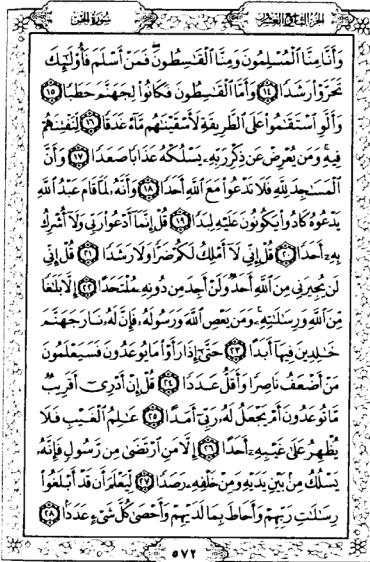 الجزء التاسع والعشرون سورة الجن
وَأَنَّا مِنَّا ٱلْمُسْلِمُونَ وَمِنَّا ٱلْقَٰسِطُونَ ۖ فَمَنْ أَسْلَمَ فَأُو۟لَٰٓئِكَ
تَحَرَّوْا۟ رَشَدًا ١٤ وَأَمَّا ٱلْقَٰسِطُونَ فَكَانُوا۟ لِجَهَنَّمَ حَطَبًا ١٥
وَأَلَّوِ ٱسْتَقَٰمُوا۟ عَلَى ٱلطَّرِيقَةِ لَأَسْقَيْنَٰهُم مَّآءً غَدَقًا ١٦ لِّنَفْتِنَهُمْ
فِيهِ ۚ وَمَن يُعْرِضْ عَن ذِكْرِ رَبِّهِۦ يَسْلُكْهُ عَذَابًا صَعَدًا ١٧ وَأَنَّ
ٱلْمَسَٰجِدَ لِلَّهِ فَلَا تَدْعُوا۟ مَعَ ٱللَّهِ أَحَدًا ١٨ وَأَنَّهُۥ لَمَّا قَامَ عَبْدُ ٱللَّهِ
يَدْعُوهُ كَادُوا۟ يَكُونُونَ عَلَيْهِ لِبَدًا ١٩ قُلْ إِنَّمَآ أَدْعُوا۟ رَبِّى وَلَآ أُشْرِكُ
بِهِۦٓ أَحَدًا ٢٠ قُلْ إِنِّى لَآ أَمْلِكُ لَكُمْ ضَرًّا وَلَا رَشَدًا ٢١ قُلْ إِنِّى
لَن يُجِيرَنِى مِنَ ٱللَّهِ أَحَدٌ وَلَنْ أَجِدَ مِن دُونِهِۦ مُلْتَحَدًا ٢٢ إِلَّا بَلَٰغًا
مِّنَ ٱللَّهِ وَرِسَٰلَٰتِهِۦ ۚ وَمَن يَعْصِ ٱللَّهَ وَرَسُولَهُۥ فَإِنَّ لَهُۥ نَارَ جَهَنَّمَ
خَٰلِدِينَ فِيهَآ أَبَدًا ٢٣ حَتَّىٰٓ إِذَا رَأَوْا۟ مَا يُوعَدُونَ فَسَيَعْلَمُونَ
مَنْ أَضْعَفُ نَاصِرًا وَأَقَلُّ عَدَدًا ٢٤ قُلْ إِنْ أَدْرِىٓ أَقَرِيبٌ
مَّا تُوعَدُونَ أَمْ يَجْعَلُ لَهُۥ رَبِّىٓ أَمَدًا ٢٥ عَٰلِمُ ٱلْغَيْبِ فَلَا
يُظْهِرُ عَلَىٰ غَيْبِهِۦٓ أَحَدًا ٢٦ إِلَّا مَنِ ٱرْتَضَىٰ مِن رَّسُولٍ فَإِنَّهُۥ
يَسْلُكُ مِنۢ بَيْنِ يَدَيْهِ وَمِنْ خَلْفِهِۦ رَصَدًا ٢٧ لِّيَعْلَمَ أَن قَدْ أَبْلَغُوا۟
رِسَٰلَٰتِ رَبِّهِمْ وَأَحَاطَ بِمَا لَدَيْهِمْ وَأَحْصَىٰ كُلَّ شَىْءٍ عَدَدًۢا ٢٨
٥٧٢